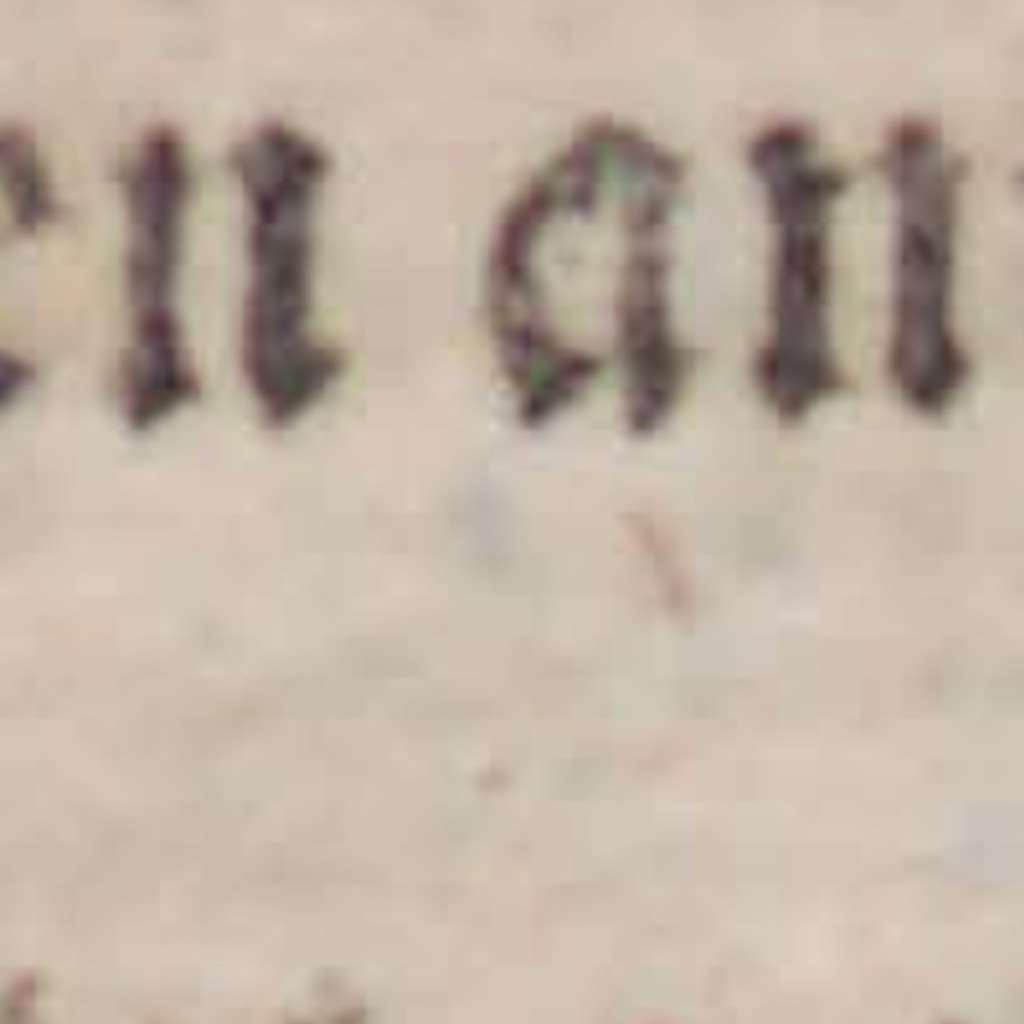 en an